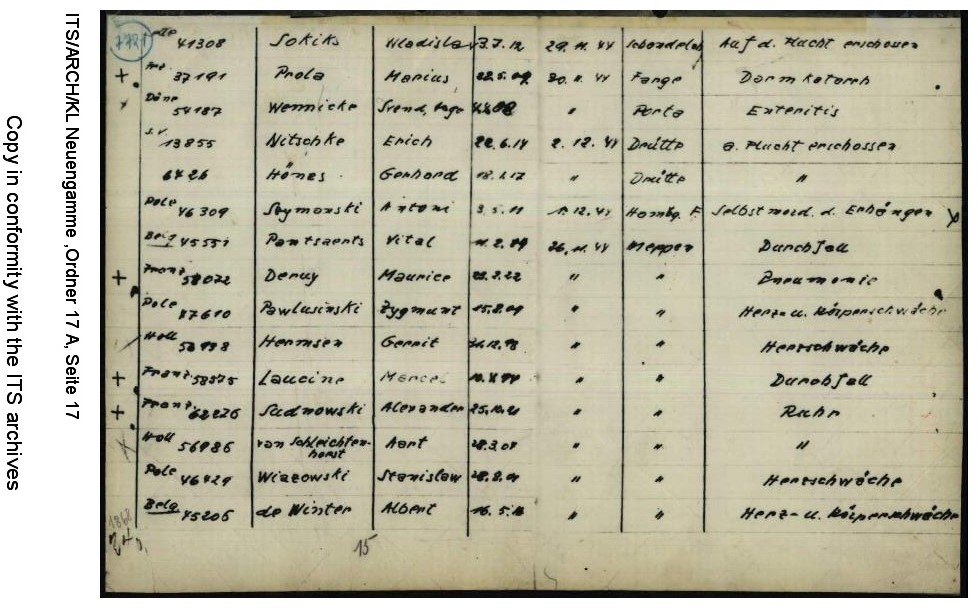 ITS/ARCH/KL Neuengamme ,Ordner 17 A, Seite 17
Copy in conformity with the ITS archives
7721
Pole 41308 Sokiks Wladislav 3.7.12 29.11.44 Schandelah Auf d. Flucht erschossen
+ Frz. 37191 Prola Marius 22.5.09 30.11.44 Farge Darmkatarrh
Däne 54187 Wennicke Svend, Aage " Porta Enteritis
S.V. 13855 Nitschke Erich 22.6.14 2.12.44 Drütte a. Flucht erschossen
6426 Hönes Gerhard 18.1.17 " Drütte "
Pole 46309 Szymanski Antoni 3.5.11 1.12.44 Hambg. F. Selbstmord. d. Erhängen
Belg 45551 Pantsaerts Vital 11.2.89 26.11.44 Meppen Durchfall
+ Franz 58022 Deruy Maurice " " Pneumonie
Pole 47610 Pawlusinski Zygmunt 15.8.09 " " Herz- u. Körperschwäche
Holl Hermsen Gerrit " " Herzschwäche
+ Franz 58575 Laucine Marcel " " Durchfall
+ Franz 62226 Sadnowski Alexander 25.10.21 " " Ruhr
Holl 56986 van Schleichten- Aart 28.3.07 " " "
horst
Pole 46429 Wiazowski Stanislaw " " Herzschwäche
Belg 45206 de Winter Albert " " Herz- u. Körperschwäche
15